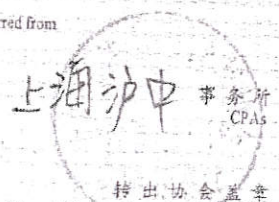 red from
上海沪中 事务所
CPAs
转出协会盖章